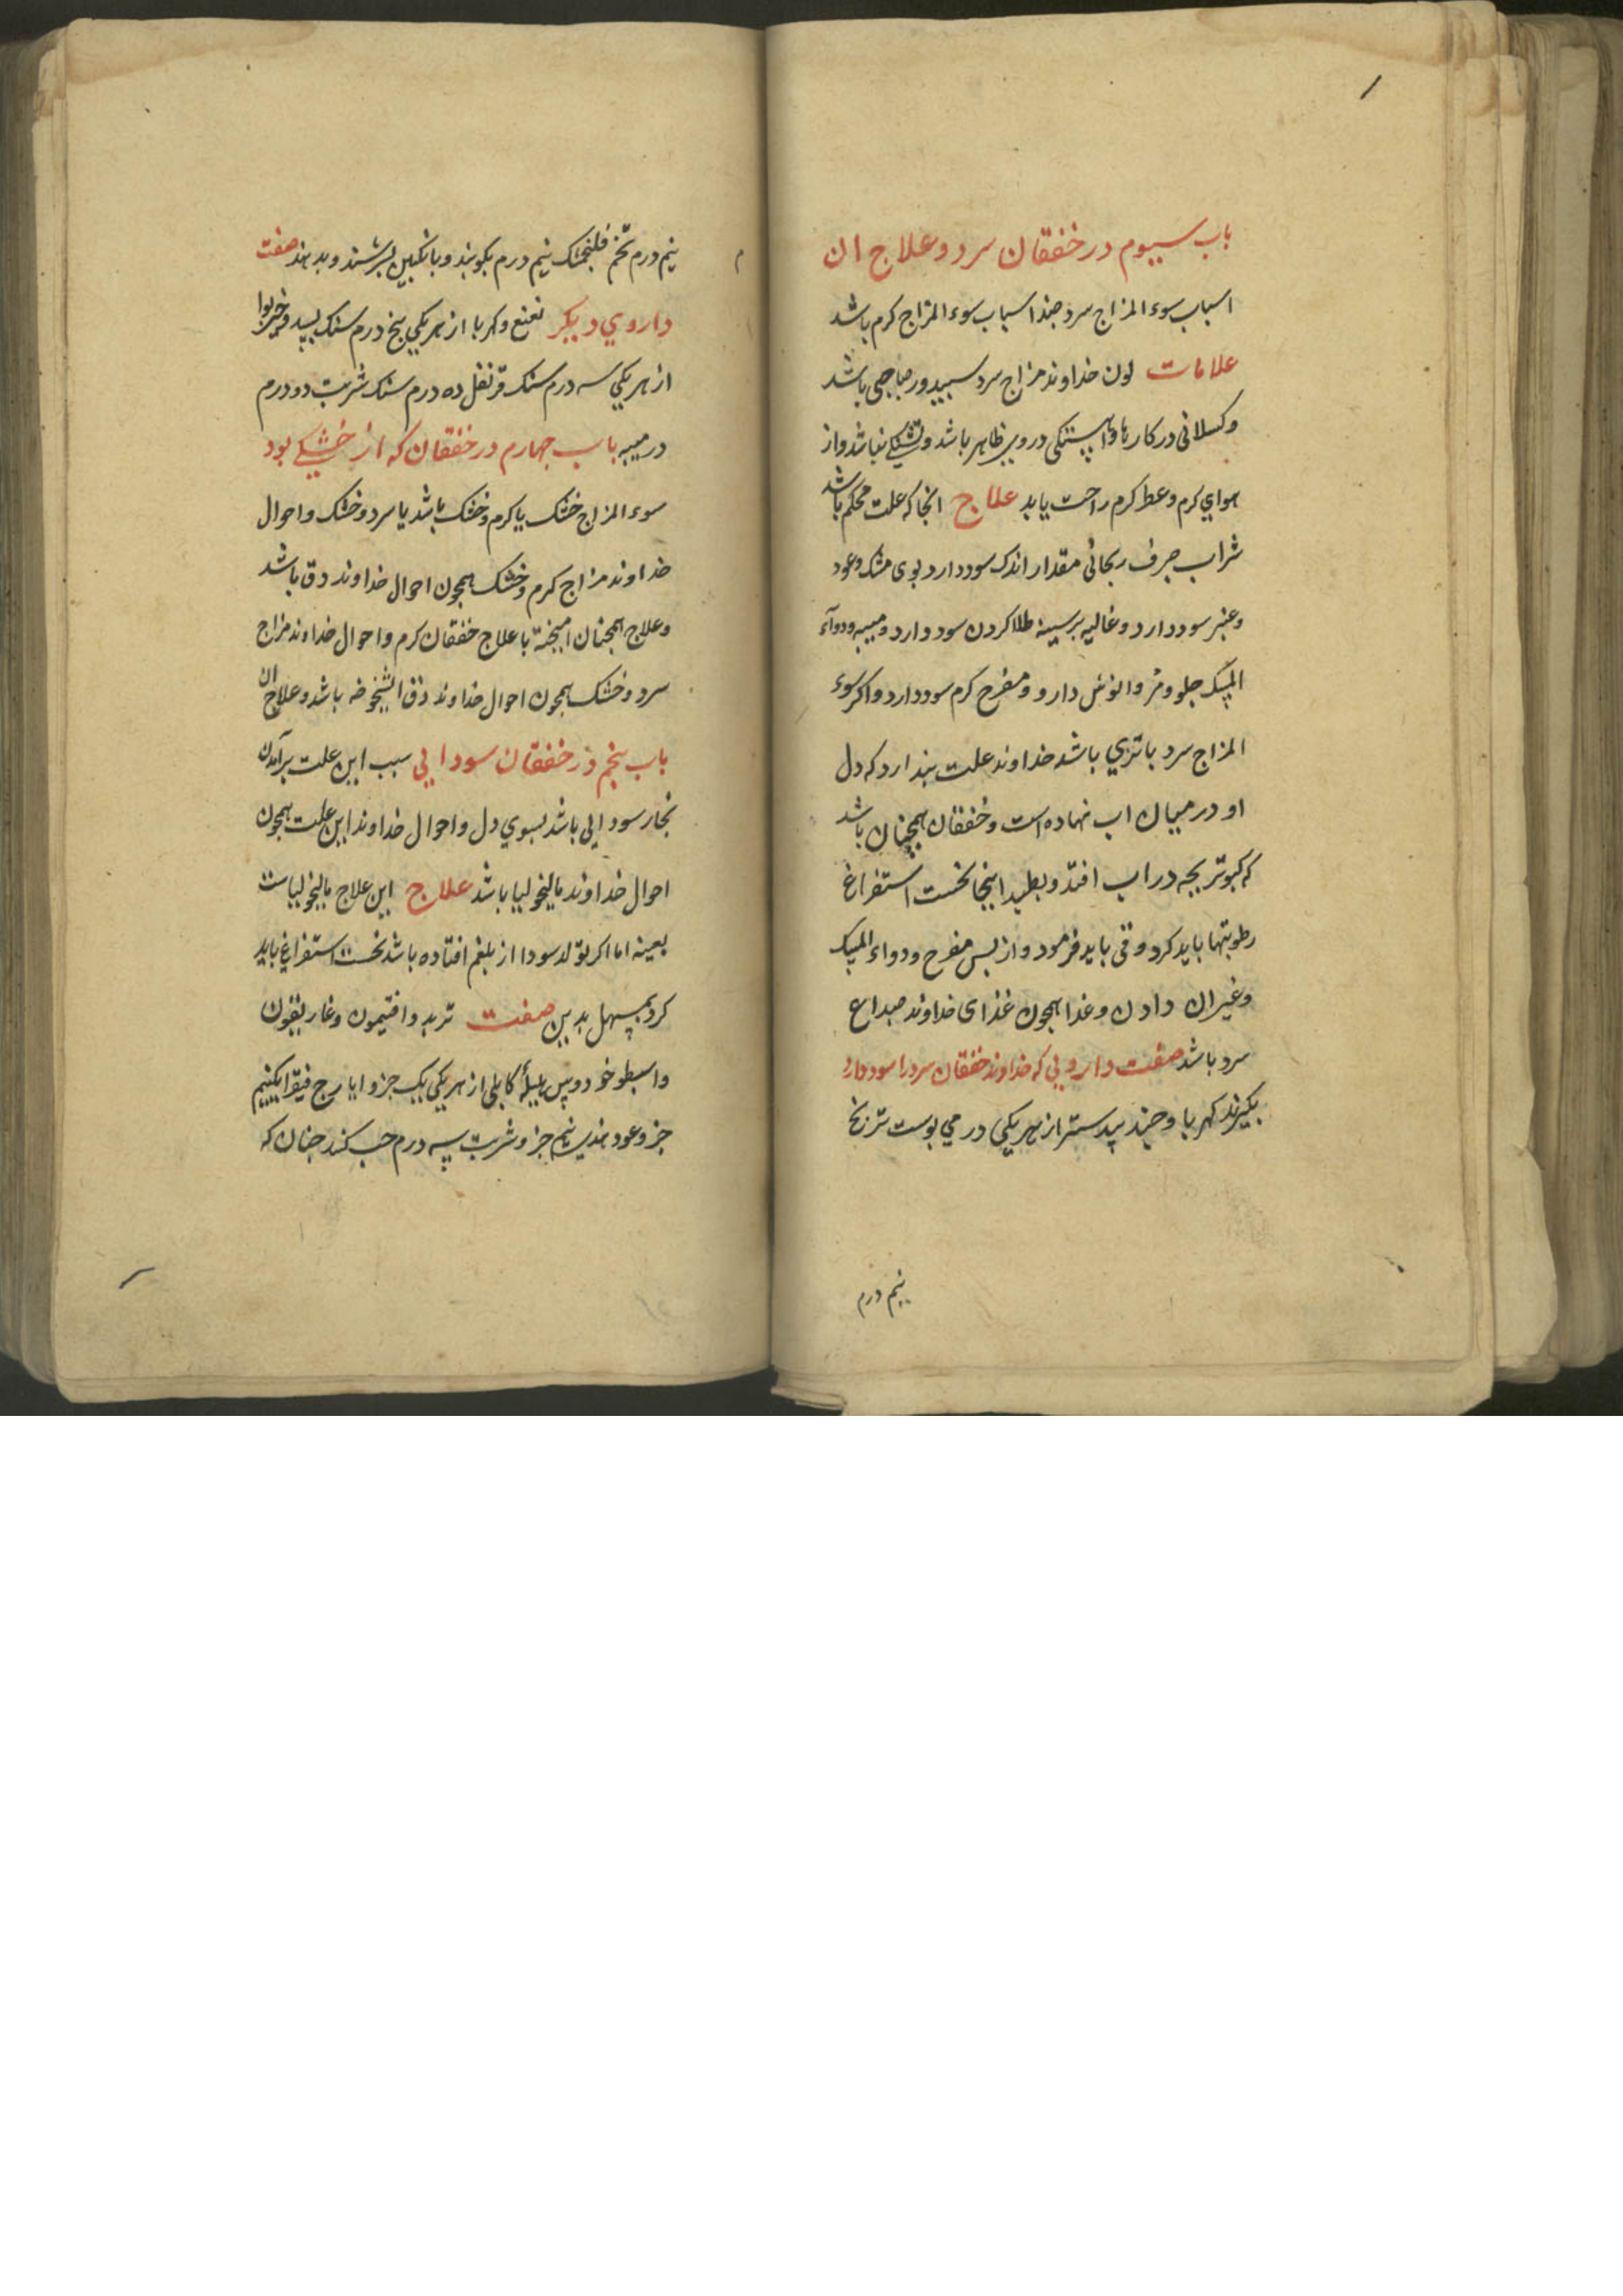 باب سیوم در خفقان سرد و علاج ان
اسباب سوء المزاج سرد ضد اسباب سوء المزاج کرم باشد
علامات لون خداوند مزاج سرد سبید و رصاصی باشد
و کسلانی در کارها و اهستکی در وی ظاهر باشد و تشنکی نباشد و از
هوای کرم و عطر کرم راحت یابد علاج انجا که علت محکم باشد
شراب صرف ریحانی مقدار اندک سود دارد بوی مشک و عود
و عنبر سود دارد و غالیه بر سینه طلا کردن سود دارد و میبه و دواء
المسک حلو و مر و انوش دارو و مفرح کرم سود دارد و اکر سوء
المزاج سرد با تری باشد خداوند علت بندارد که دل
او در میان اب نهاده است و خفقان همچنان باشد
که کبوتر بجه در اب افتد و بطبد اینجا نخست استفراغ
رطوبتها باید کرد و قی باید فرمود و از بس مفرح و دواء المسک
و غیر ان دادن و غذا همجون غذای خداوند صداع
سرد باشد صفت دارویی که خداوند خفقان سرد را سود دارد
بکیرند کهربا و جند بیدستر از هر یکی درمی بوست ترنج
نیم درم
نیم درم تخم فلنجمشک نیم درم بکوبند و بانکبین بسرشند و بدهند صفت
داروی دیکر نعنع و کهربا از هر یکی بنج درم سنک بسد و خیربوا
از هر یکی سه درم سنک قرنفل ده درم سنک شربت دو درم
در میبه باب جهارم در خفقان که از خشکی بود
سوء المزاج خشک یا کرم و خشک باشد یا سرد و خشک و احوال
خداوند مزاج کرم و خشک همجون احوال خداوند دق باشد
و علاج همجنان امیخته با علاج خفقان کرم و احوال خداوند مزاج
سرد و خشک همجون احوال خداوند دق الشیخوخه باشد و علاج ان
باب بنجم در خفقان سودایی سبب این علت برآمدن
بخار سودایی باشد بسوی دل و احوال خداوند این علت همجون
احوال خداوند مالیخولیا باشد علاج این علاج مالیخولیاست
بعینه اما اکر تولد سودا از بلغم افتاده باشد نخست استفراغ باید
کرد بمسهل بدین صفت تربد و افتیمون و غاریقون
و اسطوخودوس هلیلهٔ کابلی از هر یکی یک جزو ایارج فیقرا یک نیم
جزو عود هندی نیم جزو شربت سه درم حب کنند جنان که